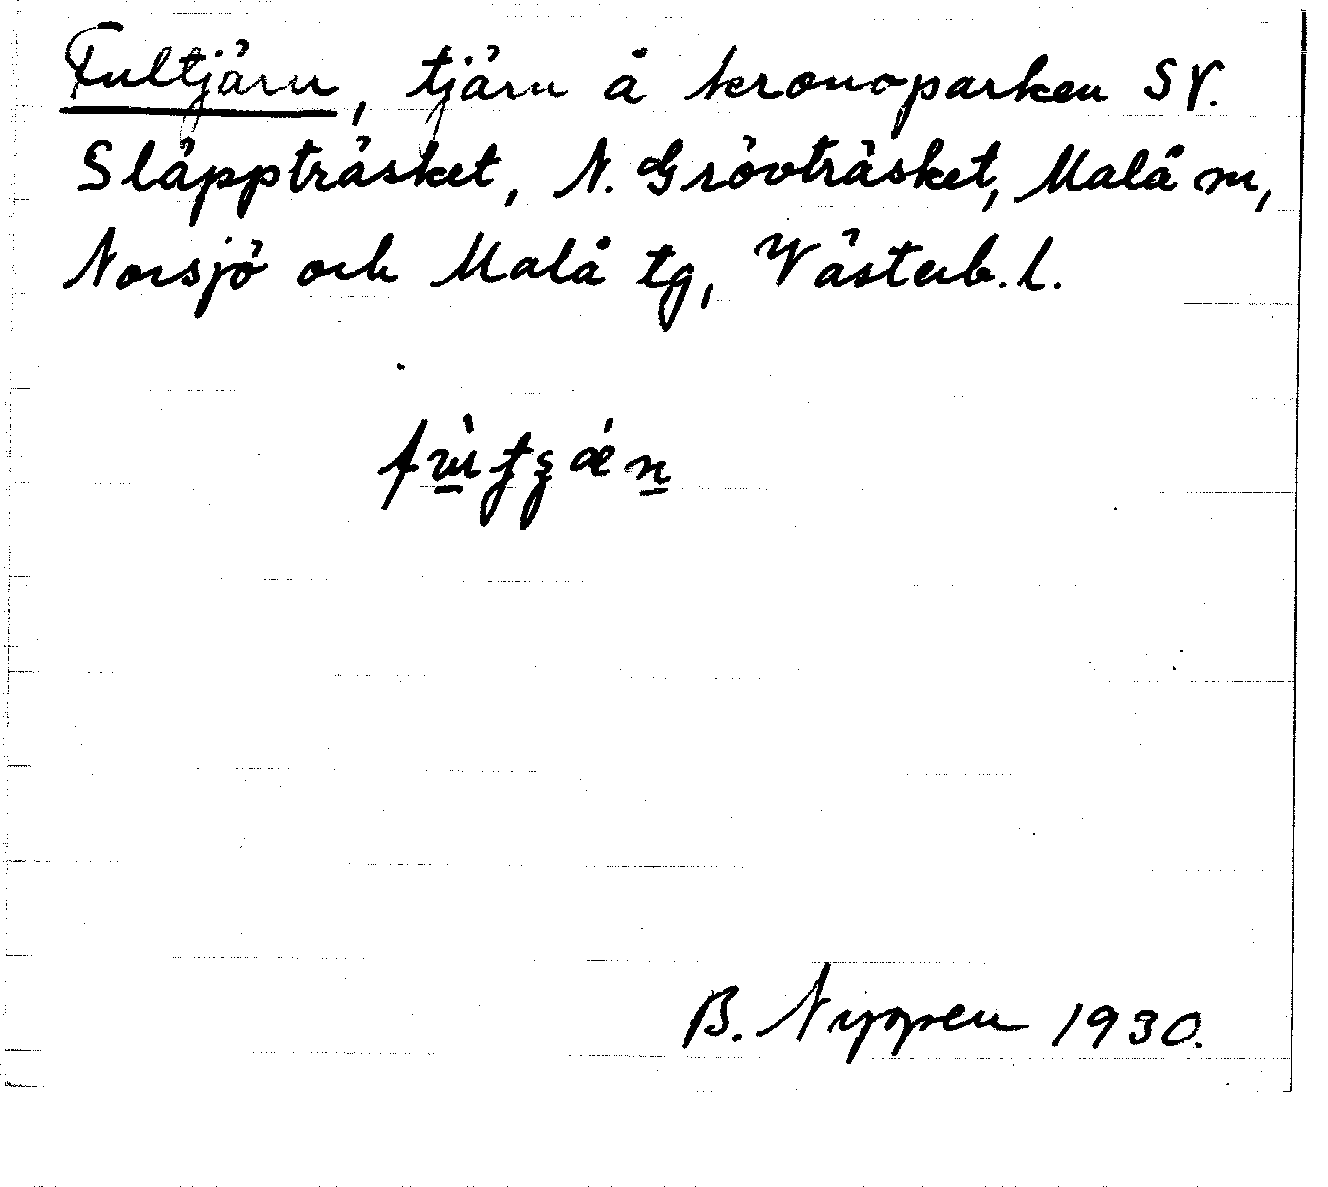 Fultjärn, tjärn å kronoparken SV.
Släppträsket, N. Grövträsket, Malå sn,
Norsjö och Malå tg, Västerb. l.
B. Nyggren 1930.